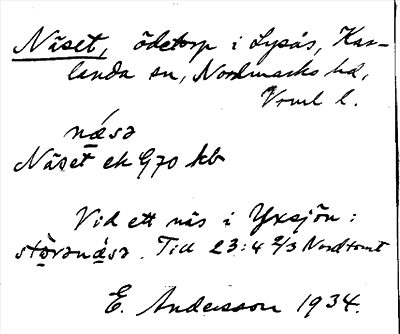 Näset, ödetorp i Lysås, Kar-
landa sn, Nordmarks hd,
Vrml l.
nä́sə
Näset ek G70 kb
Vid ett näs i Yxsjön:
stö̀rənä̀sə. Till 23:4 2/3 Nordtomt
E. Andersson 1934.